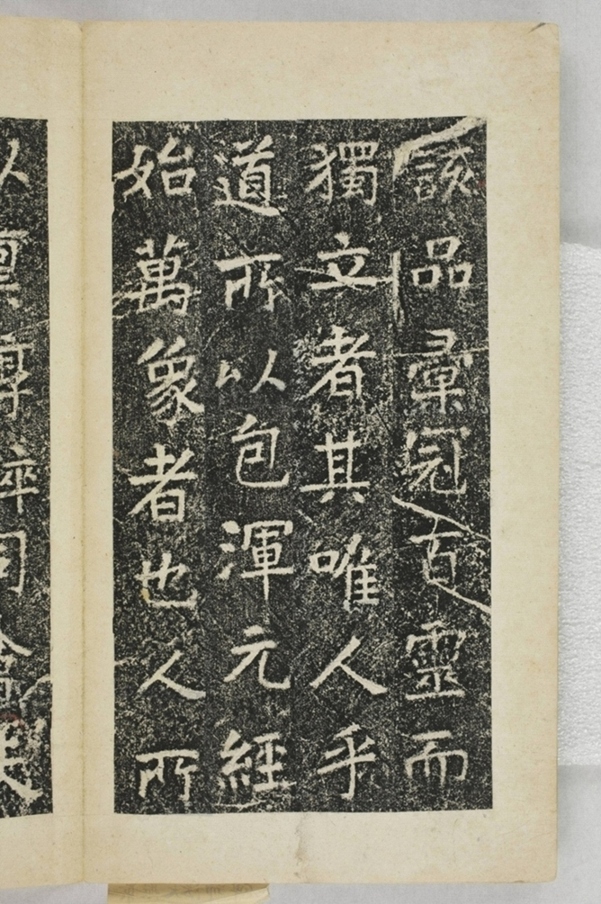 該品彙冠百靈而
獨立者其唯人乎
道所以包渾元經
始萬象者也人所